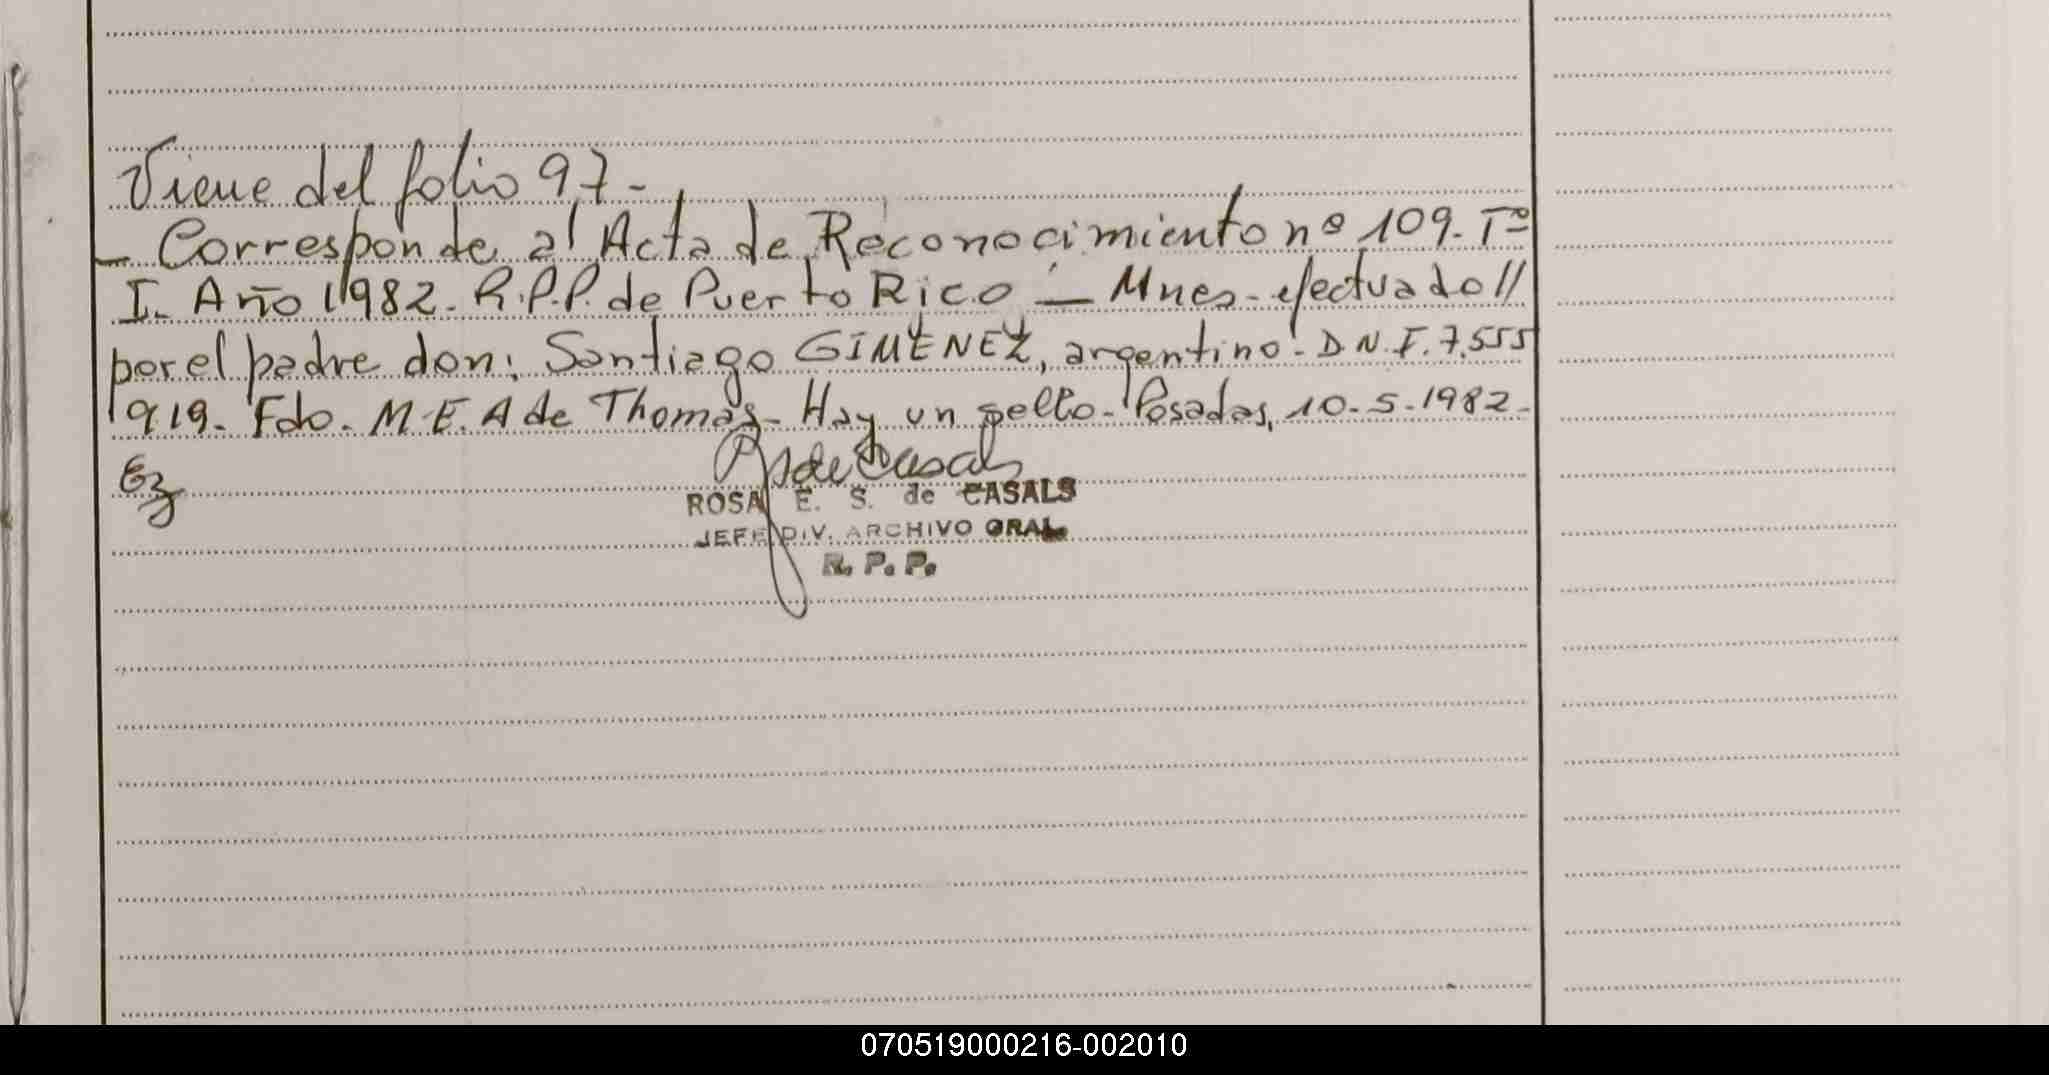 Viene del folio 97.-
- Corresponde al Acta de Reconocimiento nº 109. Tº
I. Año 1982. R.P.P. de Puerto Rico - Mnes. efectuado //
por el padre don: Santiago GIMENEZ, argentino. D N.I. 7.555
919. Fdo. M.E. A de Thomas. Hay un sello. Posadas, 10.5.1982.
RSdeCasals
ROSA E. S. de CASALS
JEFE DIV. ARCHIVO GRAL.
R. P. P.
070519000216-002010